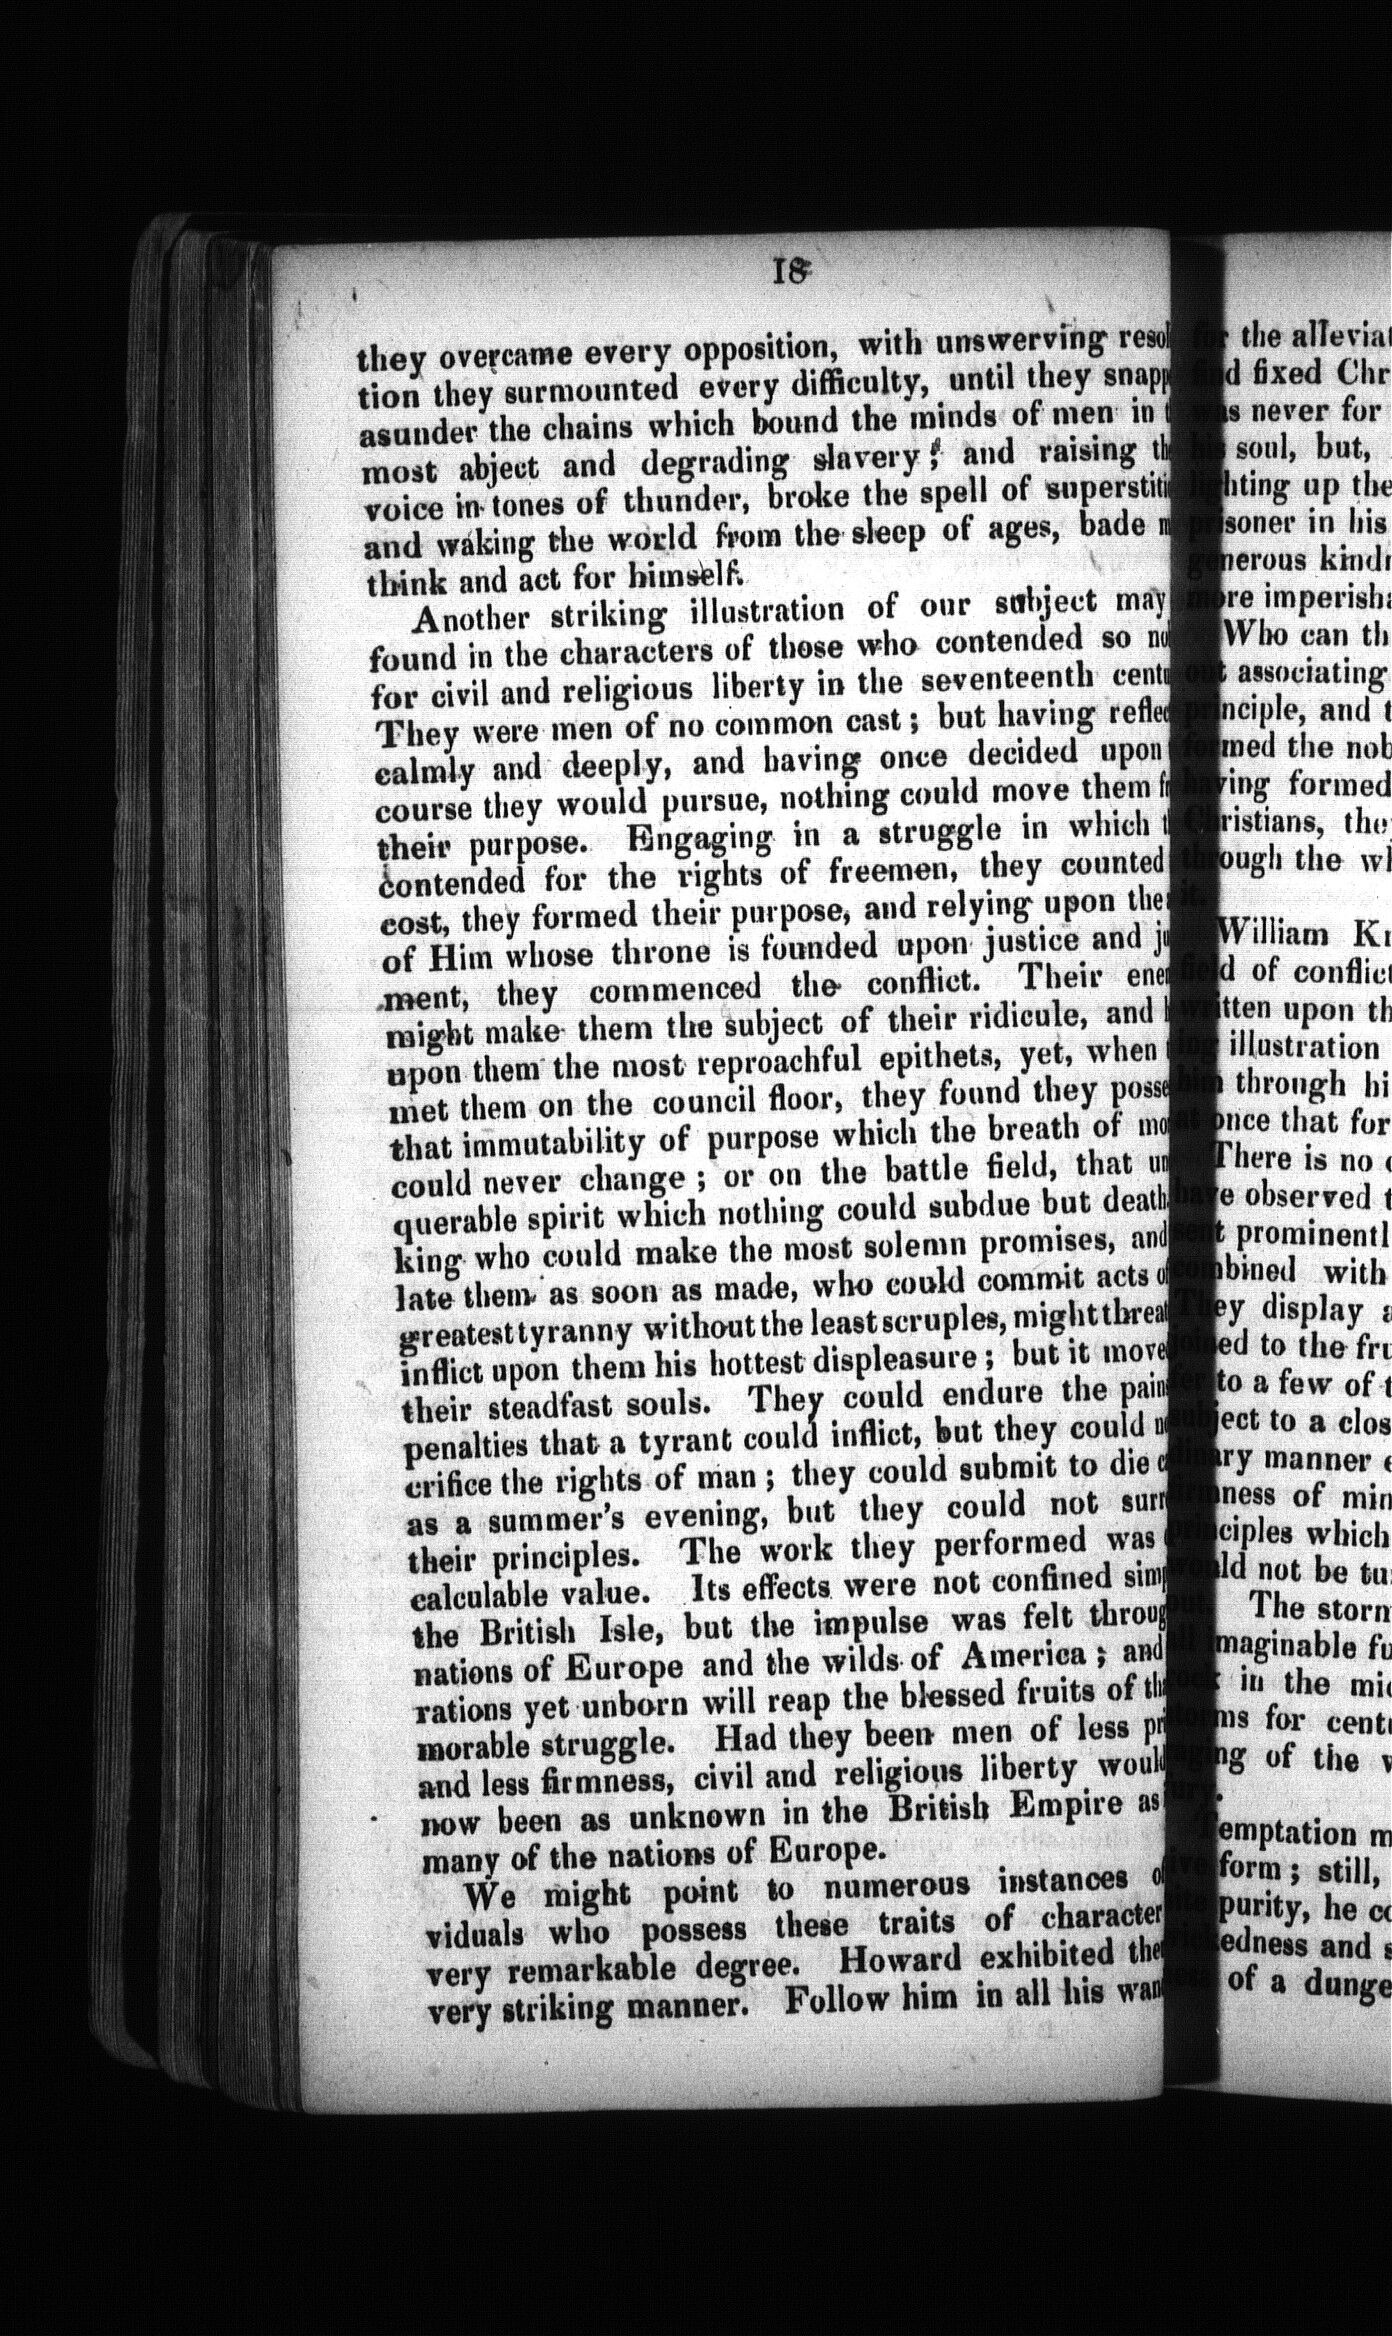 18
they overcame every opposition, with unswerving resol
tion they surmounted every difficulty, until they snapp
asunder the chains which bound the minds of men in t
most abject and degrading slavery; and raising th
voice in tones of thunder, broke the spell of superstiti
and waking the world from the sleep of ages, bade m
think and act for himself.
Another striking illustration of our subject may
found in the characters of those who contended so no
for civil and religious liberty in the seventeenth centu
They were men of no common cast; but having reflec
calmly and deeply, and having once decided upon
course they would pursue, nothing could move them fr
their purpose. Engaging in a struggle in which t
contended for the rights of freemen, they counted
cost, they formed their purpose, and relying upon the
of Him whose throne is founded upon justice and ju
ment, they commenced the conflict. Their ene
might make them the subject of their ridicule, and h
upon them the most reproachful epithets, yet, when
met them on the council floor, they found they posse
that immutability of purpose which the breath of mo
could never change; or on the battle field, that un
querable spirit which nothing could subdue but death
king who could make the most solemn promises, and
late them as soon as made, who could commit acts of
greatest tyranny without the least scruples, might threat
inflict upon them his hottest displeasure; but it move
their steadfast souls. They could endure the pain
penalties that a tyrant could inflict, but they could n
crifice the rights of man; they could submit to die c
as a summer's evening, but they could not surr
their principles. The work they performed was
calculable value. Its effects were not confined simp
the British Isle, but the impulse was felt throug
nations of Europe and the wilds of America; and
rations yet unborn will reap the blessed fruits of tha
morable struggle. Had they been men of less pri
and less firmness, civil and religious liberty would
now been as unknown in the British Empire as
many of the nations of Europe.
We might point to numerous instances of
viduals who possess these traits of character
very remarkable degree. Howard exhibited the
very striking manner. Follow him in all his wan
for the alleviat
find fixed Chr
was never for
his soul, but,
lighting up the
prisoner in his
generous kind
more imperisha
Who can th
out associating
principle, and t
formed the nob
having formed
Christians, the
through the wh
it.
William K
field of conflict
written upon th
ing illustration
him through hi
at once that for
There is no
have observed t
sent prominentl
combined with
They display a
joined to the fru
fer to a few of t
subject to a clos
dinary manner e
firmness of min
principles which
would not be tu
out. The storm
all imaginable fu
rock in the mid
storms for centu
raging of the w
ury.
Temptation m
ive form; still,
ite purity, he co
wickedness and s
of a dunge